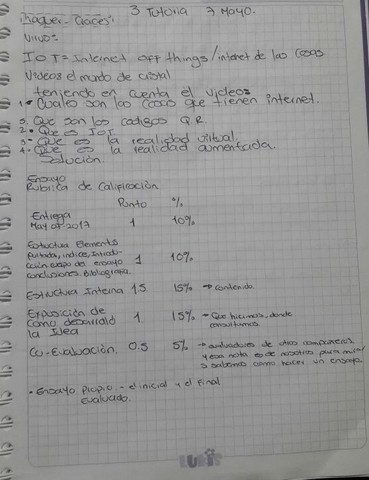 3 Tutoria 7 Mayo.
"haquer - Craices"
Virus:
IOT = Internet off things / internet de las cosas
Videos el mundo de cristal
teniendo en cuenta el videos
1- Cuales son las cosas que tienen internet.
5. Que son los codigos QR.
2- Que es IOT
3- Que es la realidad virtual.
4- Que es la realidad aumentada.
Solución.
Ensayo
Rubrica de Calificación
Punto %
Entrega
May 07-2017 1 10%
Estructura Elements
Portada, indice, Introdu-
cción cuerpo del ensayo 1 10%
conclusiones. Bibliografia.
Estructura Interna 1.5 15% → contenido.
Exposición de 1. 15% → Que hicimos, donde
como desarrolló consultamos
la Idea
Co-Evaluación. 0.5 5% → evaluadores de otros compañeros
y esa nota es de nosotros para mirar
si sabemos como hacer un ensayo
• Ensayo propio - el inicial y el final
evaluado.